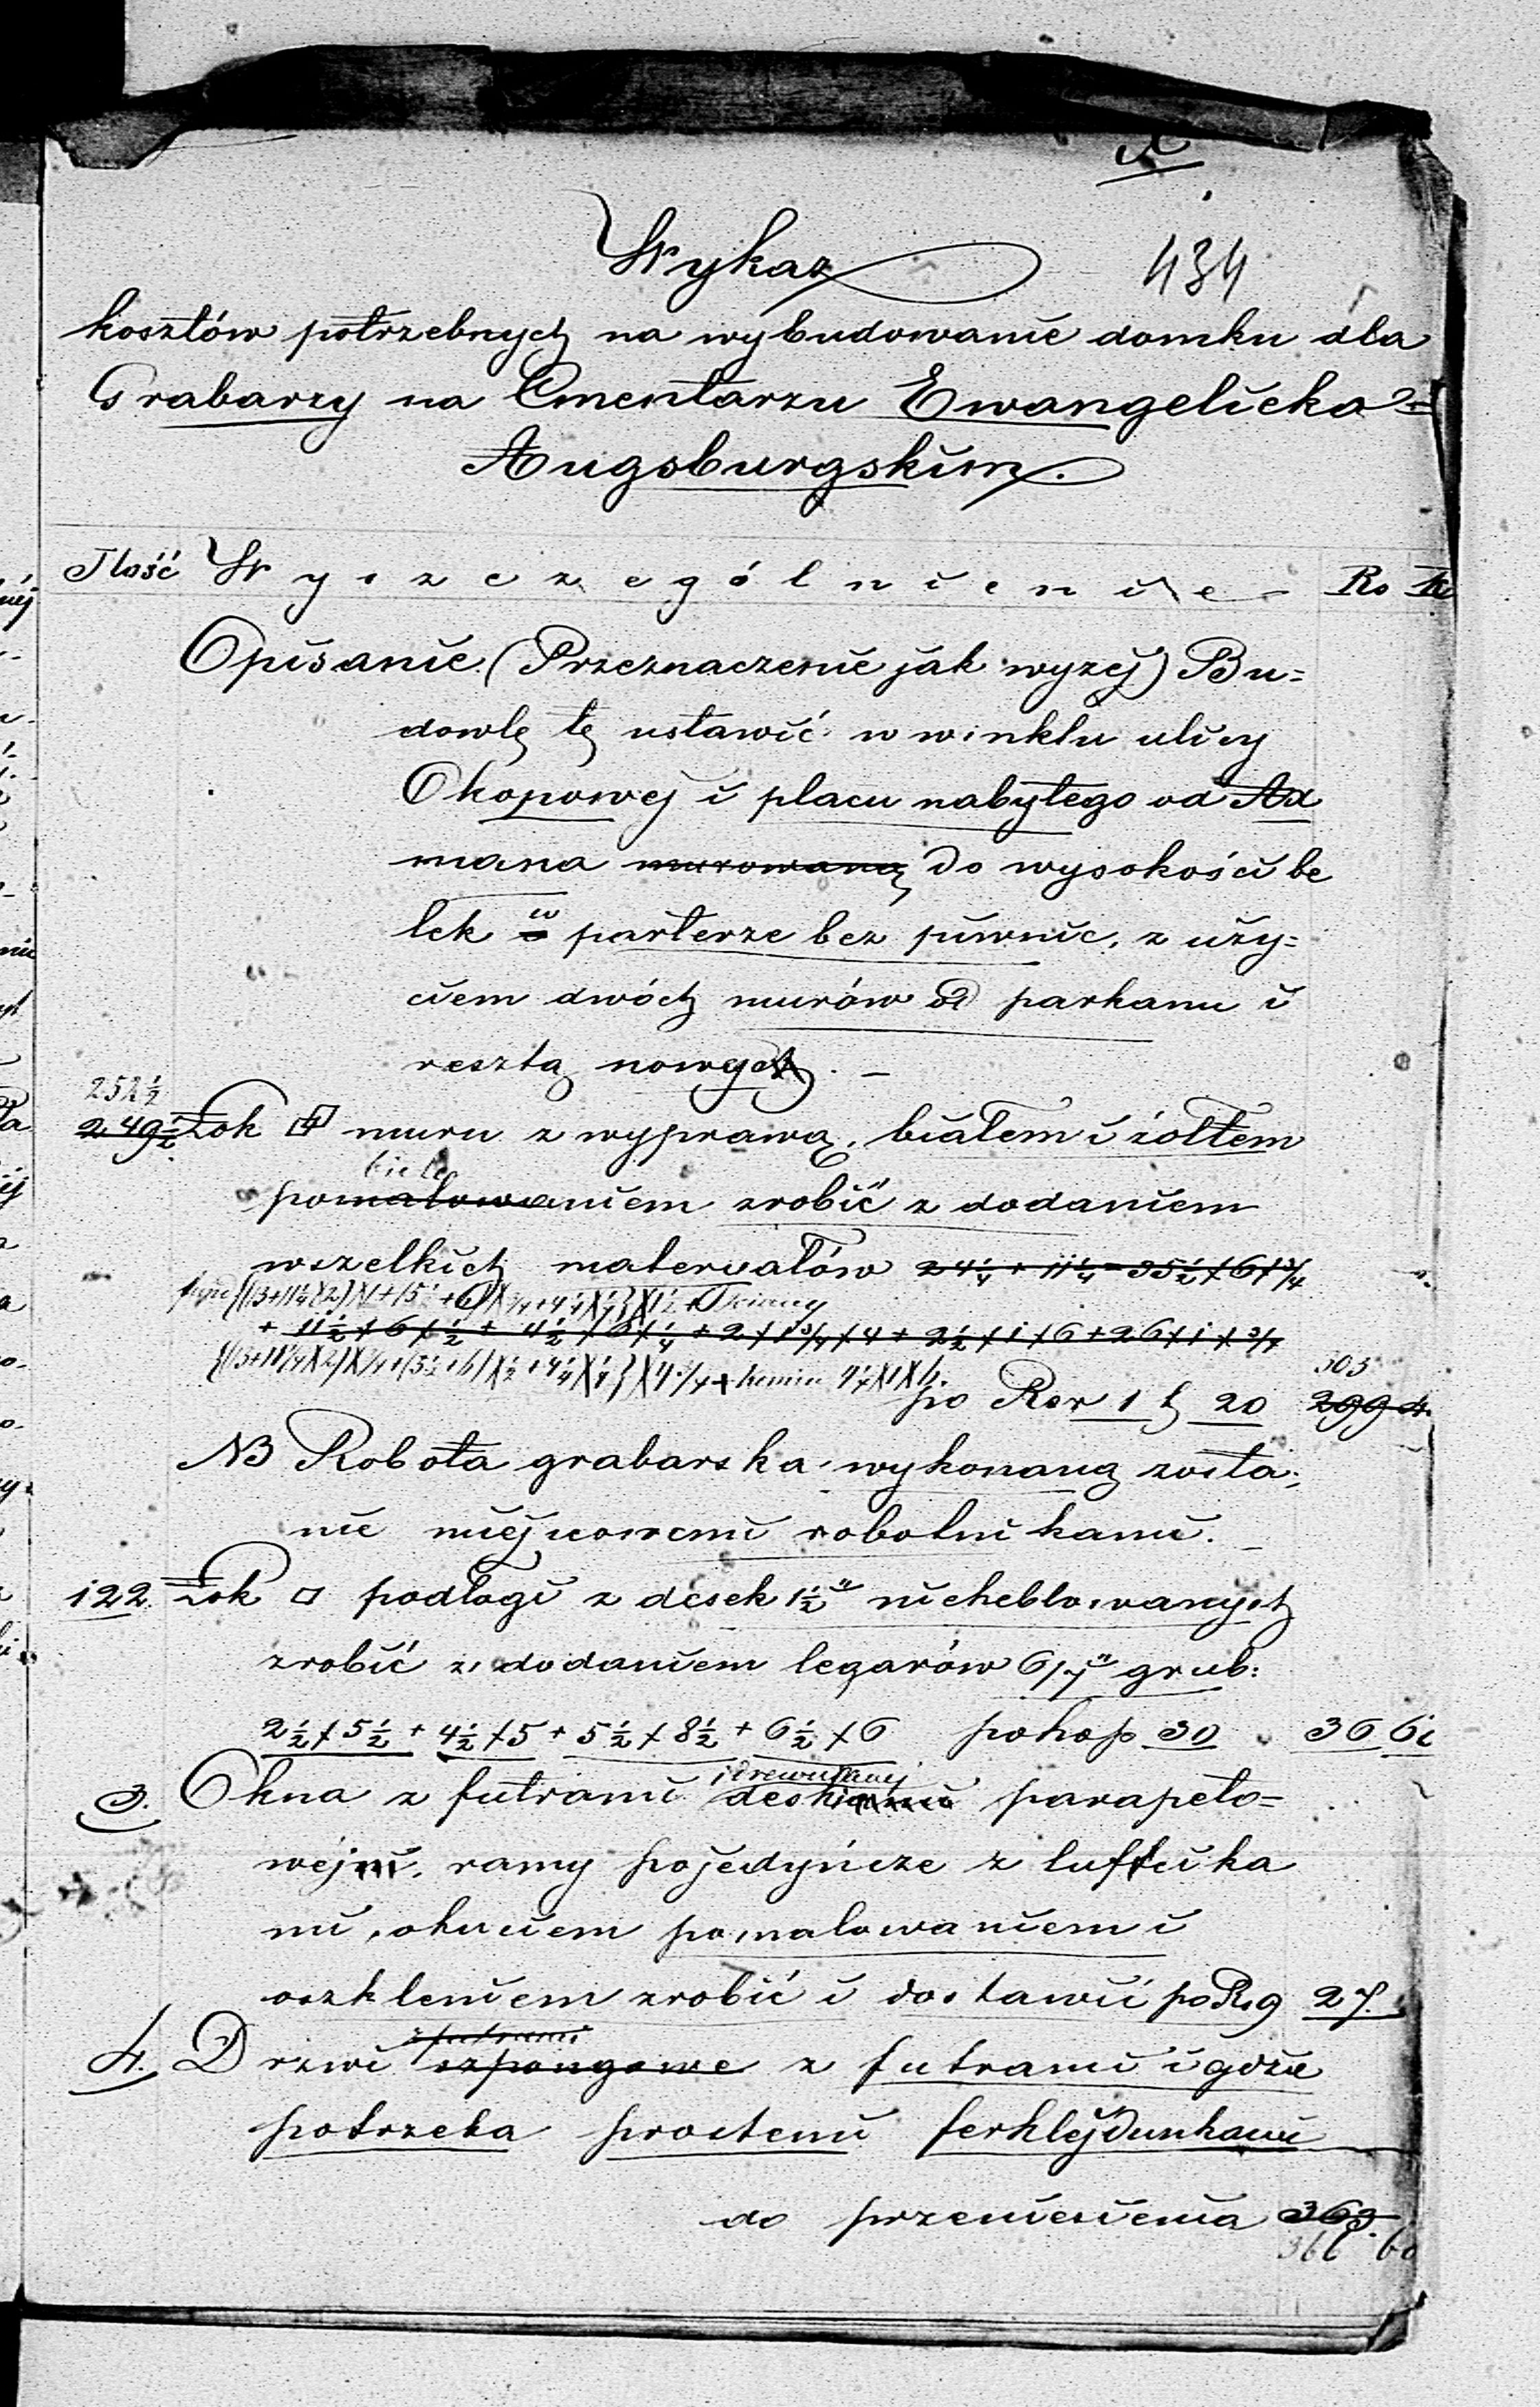 A
Wykaz 434
kosztów potrzebnych na wybudowanie domku dla
Grabarzy na Cmentarzu Ewangelicko=
Augsburgskim.
Ilość Wyszczególnienie Rs K
Opisanie (Przeznaczenie jak wyzej) Bu=
dowlę tę ustawić w winklu ulicy
Okopowej i placu nabytego od Ad
mana murowaną do wysokości be
lek w parterze bez piwnic, z uży=
ciem dwóch murów od parkanu i
resztą nowych. —
252½
249½ Łok muru z wyprawą, białem i żółtem
biele
pomalowaniem zrobić z dodaniem
wszelkich materiałów 24¼ + 11¼ = 35½ × 6 × ¾
+ 11½ × 6 × ½ + 4½ × 6 × ¼ + 2 × 1¾ × 4 + 2½ × 1 × 6 + 26 × 1 × ¾
303
po Rsr 1 k 20 299 4
NB Robota grabarska wykonaną zosta=
nie miejscowemi robotnikami. —
122 Łok □ podłogi z desek 1½" niehéblowanych
zrobić z dodaniem legarów 6/7" grub:
2½ × 5½ + 4½ × 5 + 5½ × 8½ + 6½ × 6 po kop 30 36 6i
i drewnianej
3. Okna z futrami deskami parapeto=
wéj, ramy pojedyńcze z lufcika
mi, okuciem pomalowaniem i
oszkleniem zrobić i dostawić po Rs 9 27.
z futrami
4. Drzwi szpongowe z futrami i gdzie
potrzeba prostemi ferklejdunkami
do przeniesienia 363
366 60